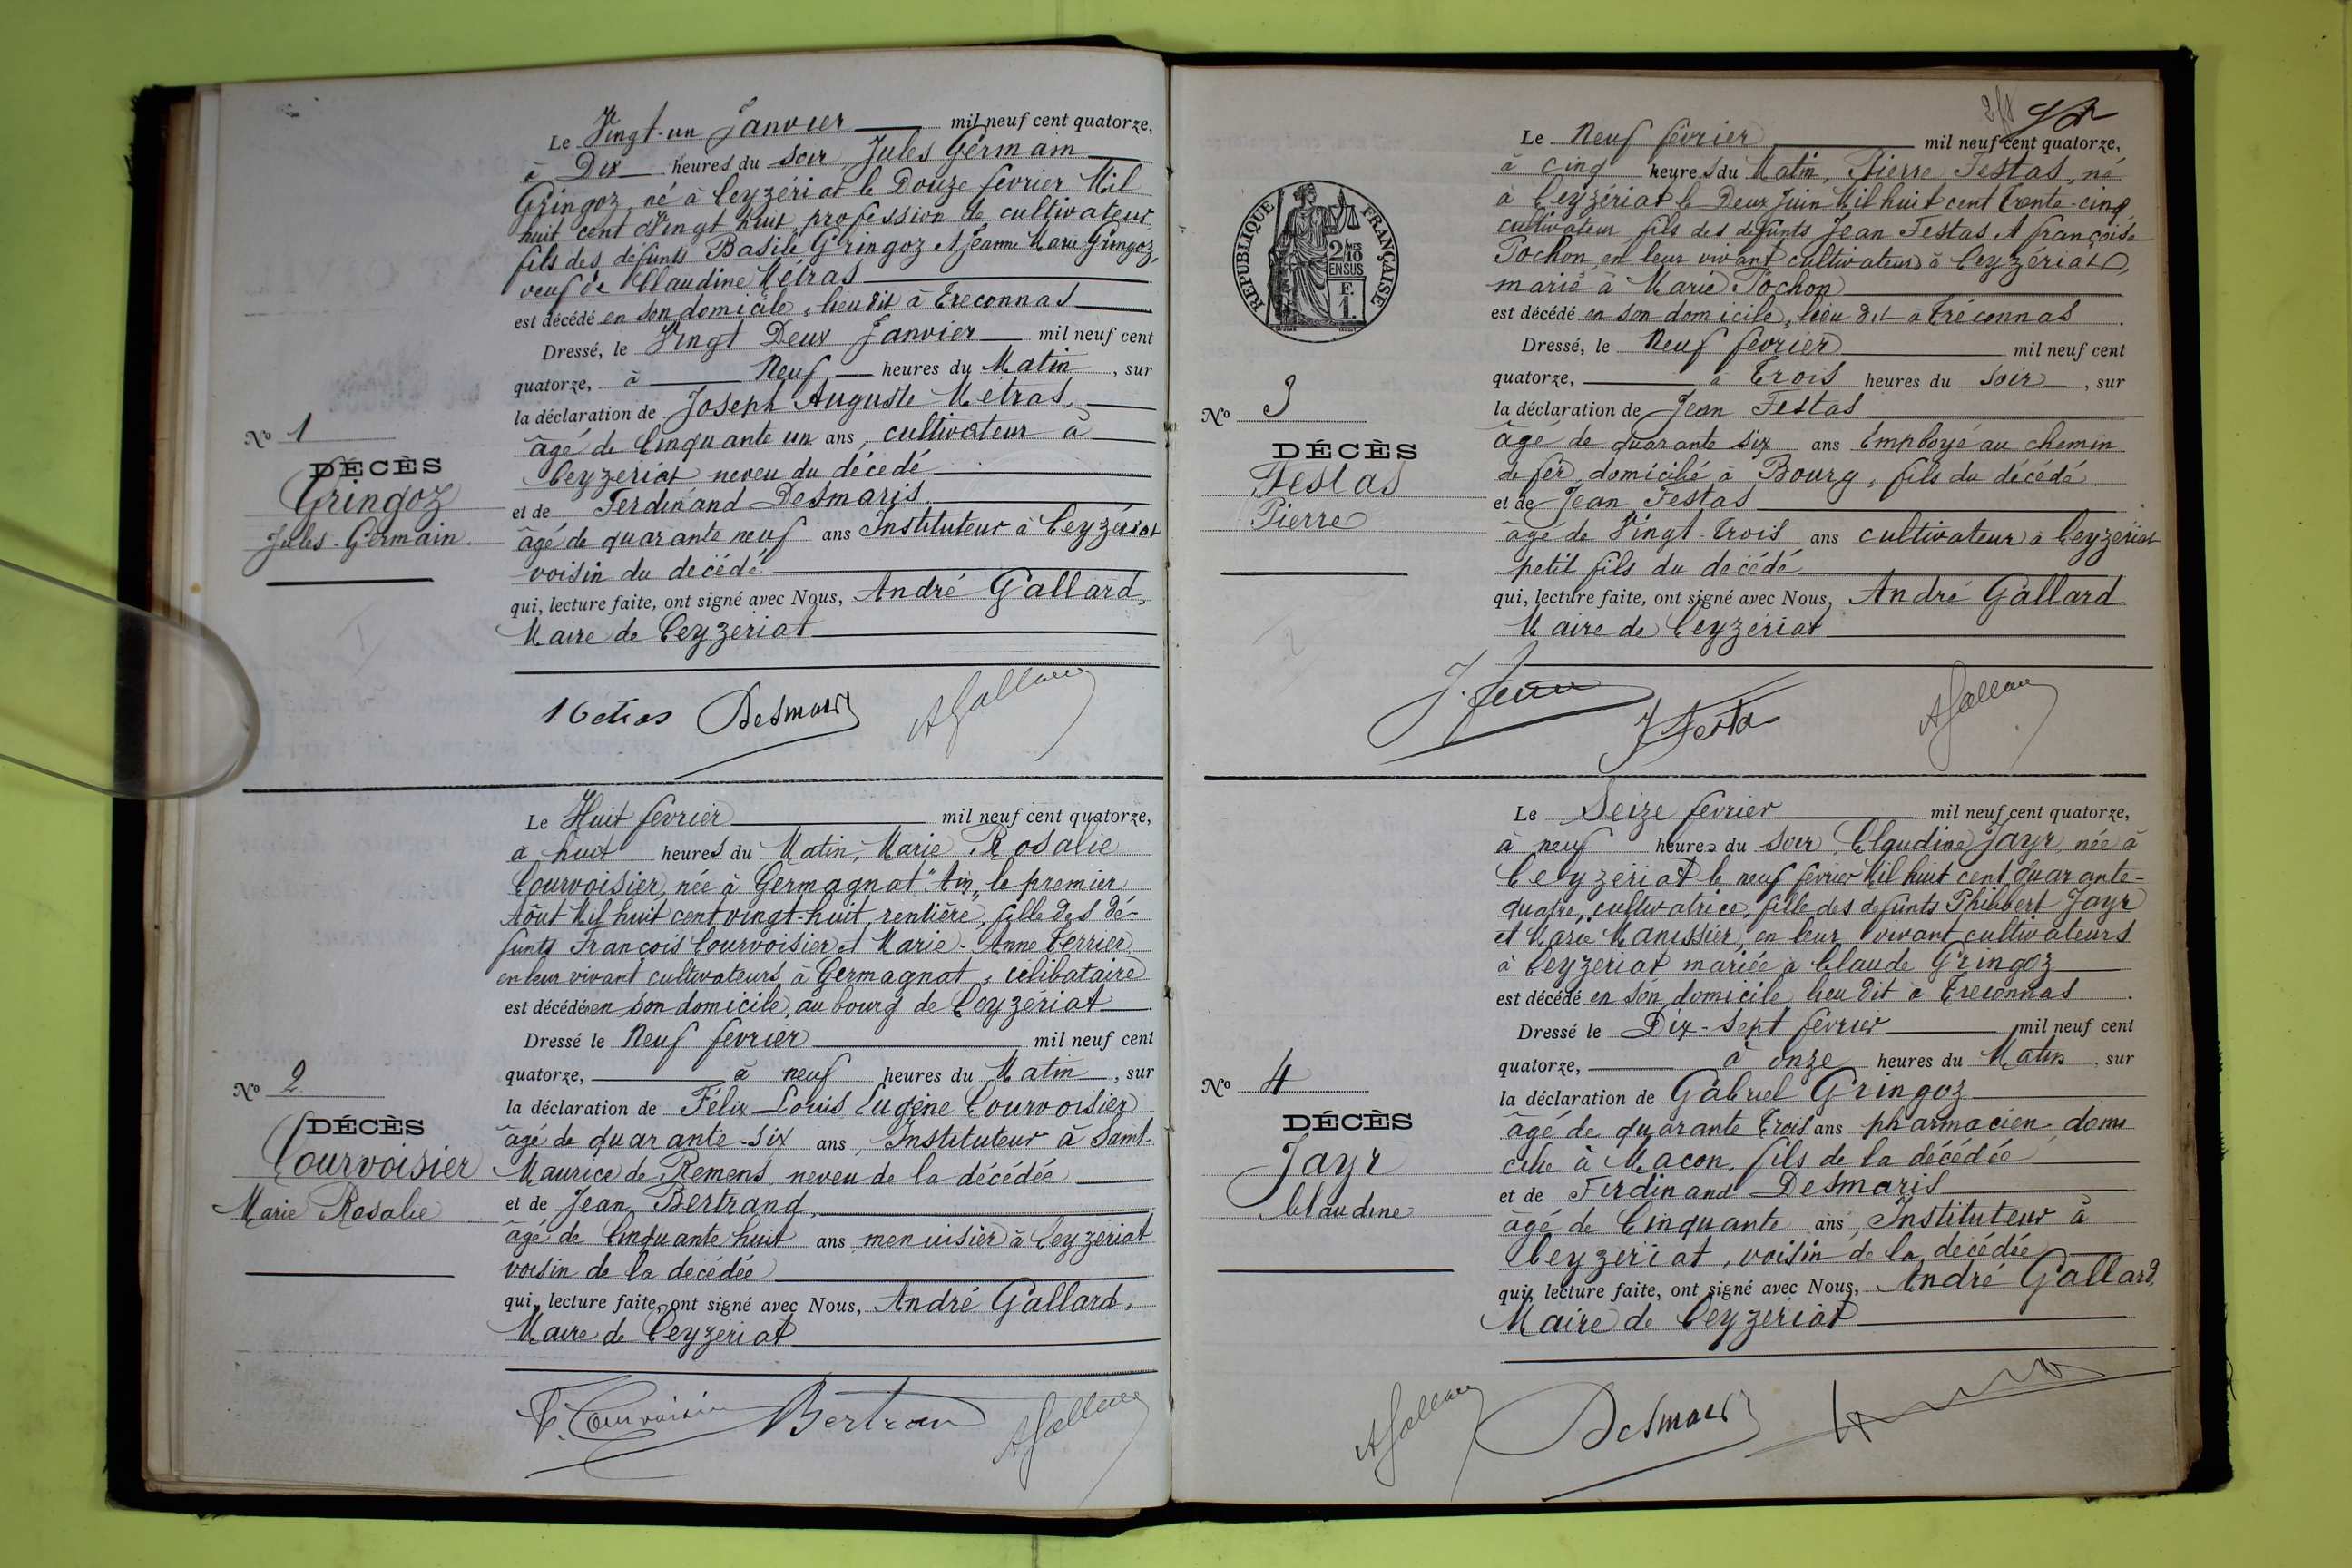 Le Vingt-un Janvier mil neuf cent quatorze,
à Dix heures du soir Jules Germain
Gringoz, né à Ceyzériat le Douze février Mil
huit cent Vingt huit, profession de cultivateur,
fils des défunts Basile Gringoz et Jeanne Marie Gringoz,
veuf de Claudine Métras
est décédé en son domicile, lieu dit à Treconnas
Dressé, le Vingt Deux Janvier mil neuf cent
quatorze, à Neuf heures du Matin, sur
la déclaration de Joseph Auguste Métras,
âgé de Cinquante un ans, cultivateur à
Ceyzeriat neveu du décédé
et de Ferdinand Desmaris
âgé de quarante neuf ans Instituteur à Ceyzériat
voisin du decédé
qui, lecture faite, ont signé avec Nous, André Gallard,
Maire de Ceyzeriat
No 1
DÉCÈS
Gringoz
Jules-Germain.
Metras Desmaris AGallard
Le Huit février mil neuf cent quatorze,
a huit heures du Matin, Marie Rosalie
Courvoisier, née à Germagnat "Ain", le premier
Aôut Mil huit cent vingt-huit, rentière, fille des dé-
funts François Courvoisier et Marie-Anne Terrier
en leur vivant cultivateurs à Germagnat, célibataire
est décédée en son domicile, au bourg de Ceyzériat
Dressé le Neuf février mil neuf cent
quatorze, à neuf heures du Matin, sur
la déclaration de Félix Louis Eugène Courvoisier
âgé de quarante-six ans, Instituteur à Saint-
Maurice de Remens neveu de la décédée
et de Jean Bertrand,
âgé de Cinquante huit ans menuisier à Ceyzériat
voisin de la décédée
qui, lecture faite, ont signé avec Nous, André Gallard,
Maire de Ceyzeriat
No 2
DÉCÈS
Courvoisier
Marie Rosalie
F. Courvoisier Bertrand AGallard
Le Neuf février mil neuf cent quatorze,
à cinq heures du Matin, Pierre Festas, né
à Ceyzériat le Deux Juin Mil huit cent Trente-cinq
cultivateur fils des défunts Jean Festas et françoise
Pochon, en leur vivant cultivateurs à Ceyzériat,
marié à Marie Pochon
est décédé en son domicile, lieu dit à Tréconnas.
Dressé, le Neuf février mil neuf cent
quatorze, à Trois heures du soir, sur
la déclaration de Jean Festas
âgé de quarante six ans Employé au chemin
de fer domicilié à Bourg, fils du décédé
et de Jean Festas
âgé de Vingt-Trois ans cultivateur à Ceyzériat
petit fils du decédé
qui, lecture faite, ont signé avec Nous, André Gallard
Maire de Ceyzeriat
RÉPUBLIQUE FRANÇAISE
2/10
EN SUS
F.
1.
No 3
DÉCÈS
Festas
Pierre
J Festa AGallard
Le Seize février mil neuf cent quatorze,
à neuf heures du soir Claudine Jayr, née à
Ceyzériat le neuf février Mil huit cent Quarante-
quatre, cultivatrice, fille des defunts Philibert Jayr
et Marie Manissier, en leur vivant cultivateurs
à Ceyzeriat mariée à Claude Gringoz
est décédé en son domicile lieu dit à Treconnas.
Dressé le Dix-Sept février mil neuf cent
quatorze, à onze heures du Matin, sur
la déclaration de Gabriel Gringoz
âgé de quarante Trois ans pharmacien, domi
cilié à Macon, fils de la décédée
et de Ferdinand Desmaris
âgé de Cinquante ans Instituteur à
Ceyzeriat, voisin de la decédée
qui, lecture faite, ont signé avec Nous, André Gallard,
Maire de Ceyzeriat
No 4
DÉCÈS
Jayr
Claudine
AGallard Desmaris